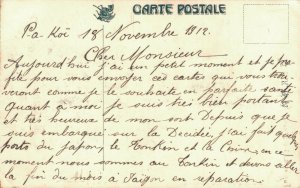 CARTE POSTALE
Pa Koï 18 Novembre 1912.
Cher Monsieur
Aujourd'hui j'ai un petit moment et je pro
fite pour vous envoyer ces cartes qui vous
veront comme je le souhaite en parfaite santé
Quant à moi je suis très bien portant
et très heureux de mon sort Depuis que je
suis embarqué sur la Décidée, j'ai fait
ports du Japon, le Tonkin et la Chine, en ce
moment nous sommes au Tonkin et devons aller
la fin du mois à Saïgon en réparation.